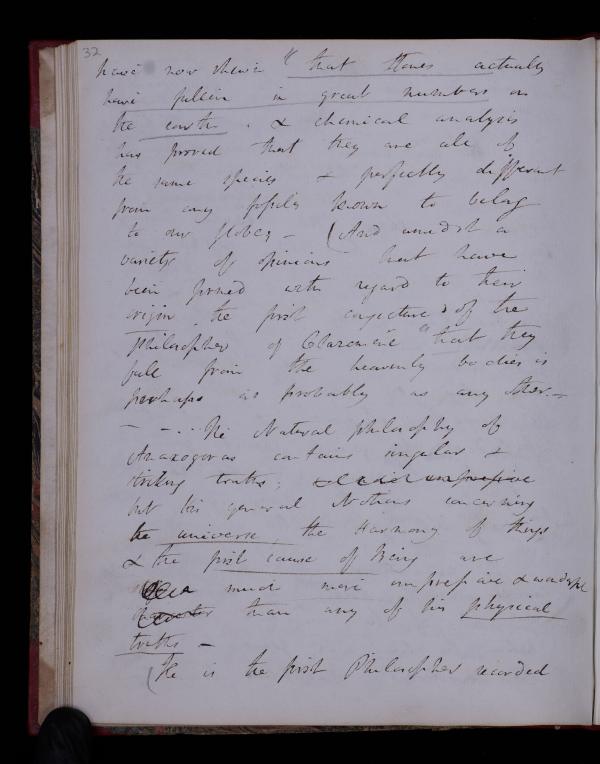 32
have now shewn "that stones actually
have fallen in great numbers on
the earth. & chemical analysis
has proved that they are all of
the same species & perfectly different
from any fossils known to belong
to our globe; - (And amidst a
variety of opinions that have
been formed with regard to their
origin the first conjectures of the
Philosopher of Clazomene "that they
fall from the heavenly bodies is
perhaps as probably as any other. -
- - .. The Natural philosophy of
Anaxagoras contains singular &
striking truths;
but his general Notions concerning
the universe, the Harmony of things
& the first cause of Being are
much more impressive & wonderful
than any of his physical
truths -
(He is the first Philosopher recorded